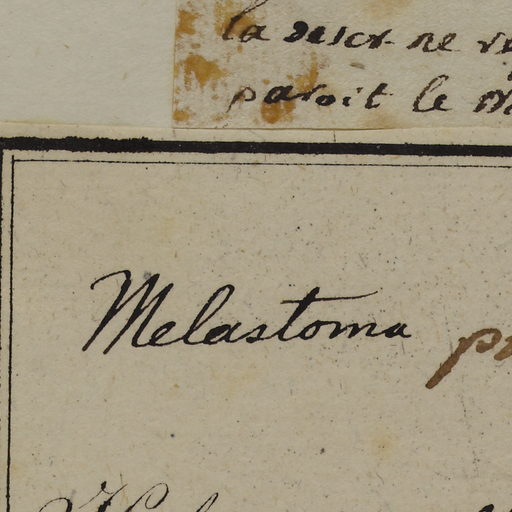 la descr ne
paroit le
Melastoma